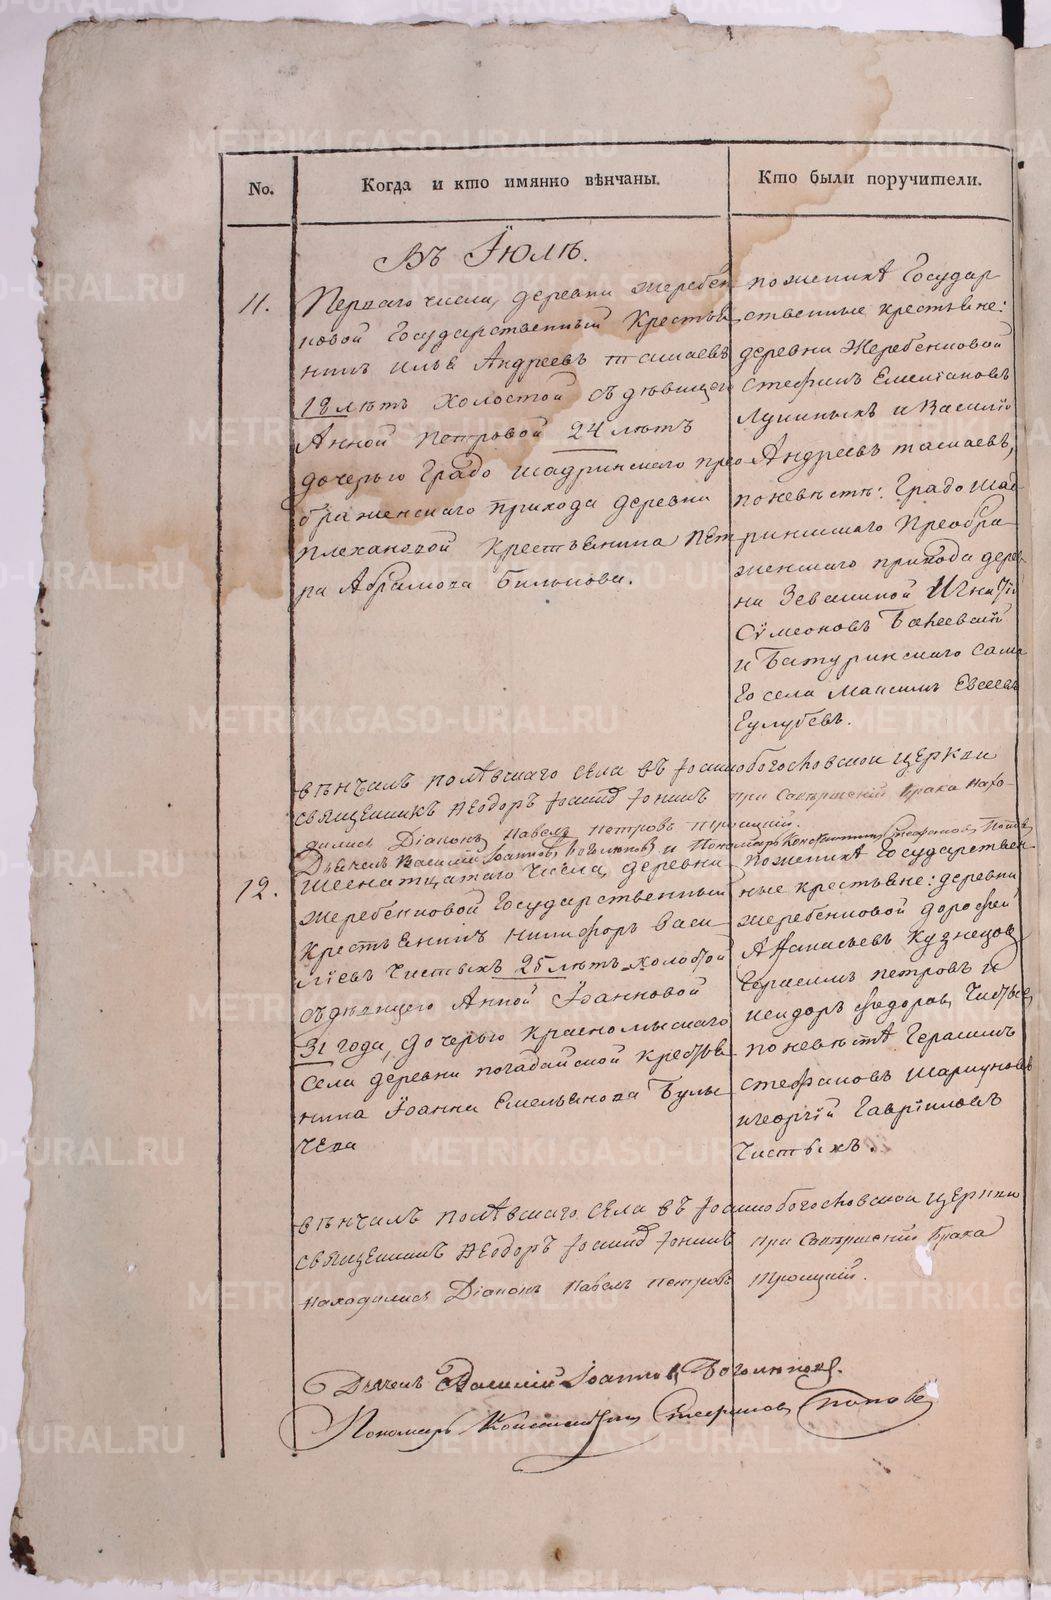 No.
Когда и кто имянно вѣнчаны.
Кто были поручители.
Въ Іюлѣ.
11.
Перваго числа, деревни Жеребен
ковой Государственный Крестья
нинъ Илья Андреевъ
18 лѣтъ холостой съ дѣвицею
Анной Петровой 24 лѣтъ
дочерью Градо Шадринскаго прео
браженскаго прихода деревни
Плехановой Крестьянина Пет
ра Абрамова
по женихѣ Государ
ственные крестьяне:
деревни Жеребенковой
Стефанъ Емеліановъ
и Василій
Андреевъ
по невѣстѣ: Градо Шад
ринскаго Преобра
женскаго прихода дерев
ни Игнатій
Сүмеоновъ
и Батуринскаго сама
го села Максимъ Евсеевъ
вѣнчалъ села въ Іоаннобогословской церкви
священникъ Ѳеодоръ при Совершеніи брака нахо-
дились Діаконъ Павелъ Петровъ Троицкій.
Дьячекъ Василій Іоанновъ Боголюповъ и Пономарь Константинъ Стефановъ Поповъ
12.
Шеснатцатаго Числа, деревни
Жеребенковой Государственный
Крестьянинъ Никифоръ Васи
ліевъ Чистыхъ 25 лѣтъ холостой
съ дѣвицею Анной Іоанновой
31 года, дочерью Красномыскаго
Села деревни Погадайской Крестья
нина Іоанна Емельянова Булы
чева
по женихѣ Государствен
ные крестьяне: деревни
Жеребенковой Дорофей
Афанасьевъ Кузнецовъ
Герасимъ Петровъ и
Исидоръ Федоровъ Чистых
по невѣстѣ Герасимъ
Стефановъ
и Георгій Гавріиловъ
Чистыхъ.
вѣнчалъ села въ Іоаннобогословской церкви
священникъ Ѳеодоръ при Совершеніи Брака
находились Діаконъ Павелъ Петровъ Троицкій.
Дьячекъ Василій Іоанновъ Боголюповъ.
Пономарь Константинъ Стефановъ Поповъ
METRIKI.GASO-URAL.RU